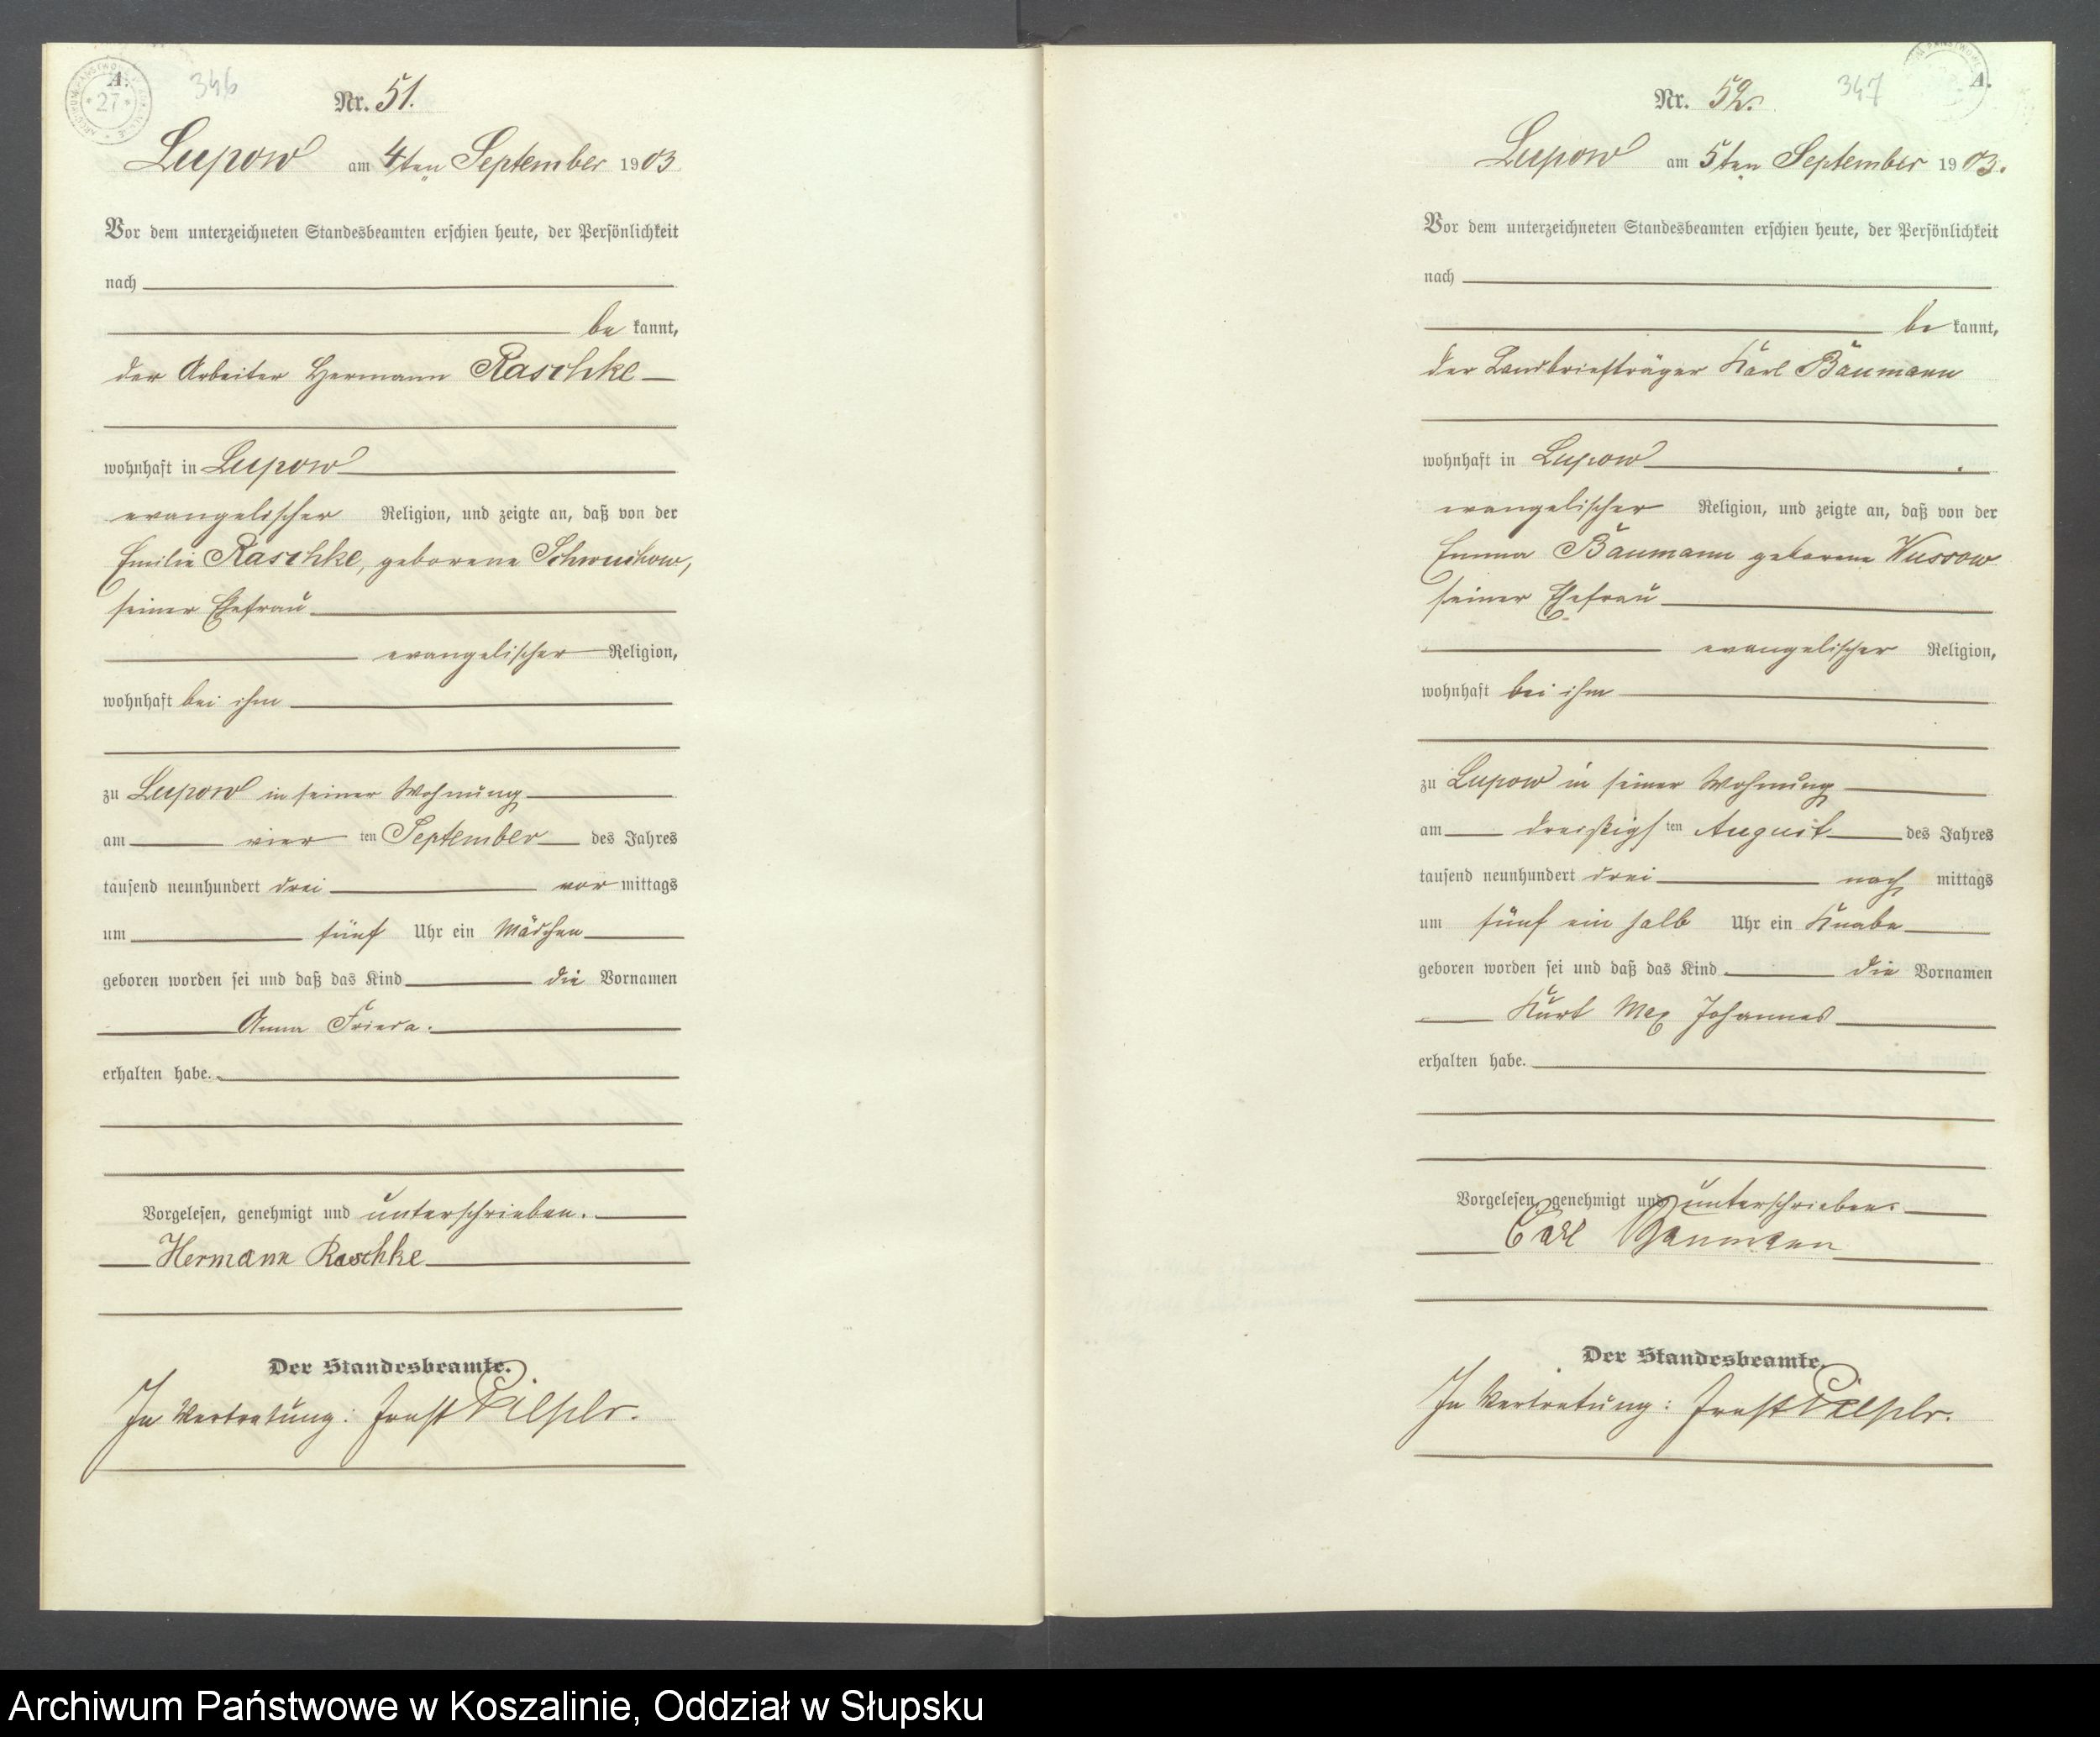 A.
27
346
Nr. 51.
Lupow am 4ten September 1903
Vor dem unterzeichneten Standesbeamten erschien heute, der Persönlichkeit
nach
be kannt,
der Arbeiter Hermann Raschke
wohnhaft in Lupow
evangelischer Religion, und zeigte an, daß von der
Emilie Raschke, geborene Schwuchow,
seiner Ehefrau
evangelischer Religion,
wohnhaft bei ihm
zu Lupow in seiner Wohnung
am vier ten September des Jahres
tausend neunhundert drei vor mittags
um fünf Uhr ein Mädchen
geboren worden sei und daß das Kind die Vornamen
Anna Frieda.
erhalten habe.
Vorgelesen, genehmigt und unterschrieben.
Hermann Raschke
Der Standesbeamte.
In Vertretung: Ernst
A.
347
Nr. 52.
Lupow am 5ten September 1903.
Vor dem unterzeichneten Standesbeamten erschien heute, der Persönlichkeit
nach
be kannt,
der Landbriefträger Karl Baumann
wohnhaft in Lupow
evangelischer Religion, und zeigte an, daß von der
Emma Baumann geborene Wussow
seiner Ehefrau
evangelischer Religion,
wohnhaft bei ihm
zu Lupow in seiner Wohnung
am dreißigs ten August des Jahres
tausend neunhundert drei nach mittags
um fünf ein halb Uhr ein Knabe
geboren worden sei und daß das Kind die Vornamen
Kurt Max Johannes
erhalten habe.
Vorgelesen, genehmigt und unterschrieben.
Carl Baumann
Der Standesbeamte.
In Vertretung: Ernst
Archiwum Państwowe w Koszalinie, Oddział w Słupsku